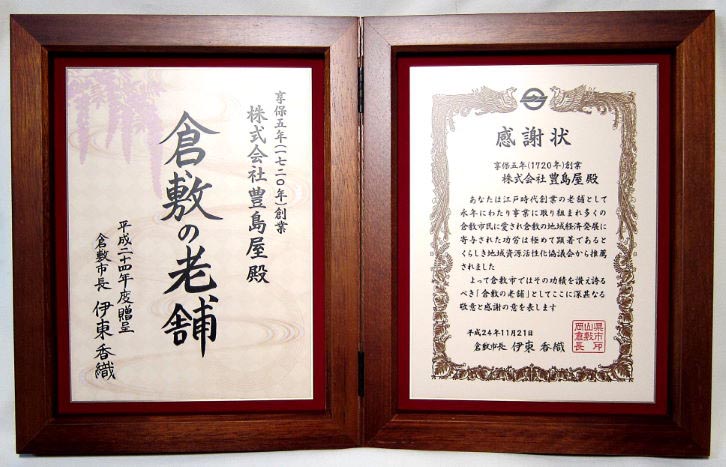 享保五年(一七二〇年)創業
株式会社豊島屋 殿
倉敷の老舗
平成二十四年度贈呈
倉敷市長 伊東香織
感謝状
享保五年(1720年)創業
株式会社豊島屋 殿
あなたは江戸時代創業の老舗として
永年にわたり事業に取り組まれ多くの
倉敷市民に愛され倉敷の地域経済発展に
寄与された功労は極めて顕著であると
くらしき地域資源活性化協議会から推薦
されました
よって倉敷市ではその功績を讃え誇る
べき「倉敷の老舗」としてここに深甚なる
敬意と感謝の意を表します
平成24年11月21日
倉敷市長 伊東 香織
岡山県
倉敷市
長印